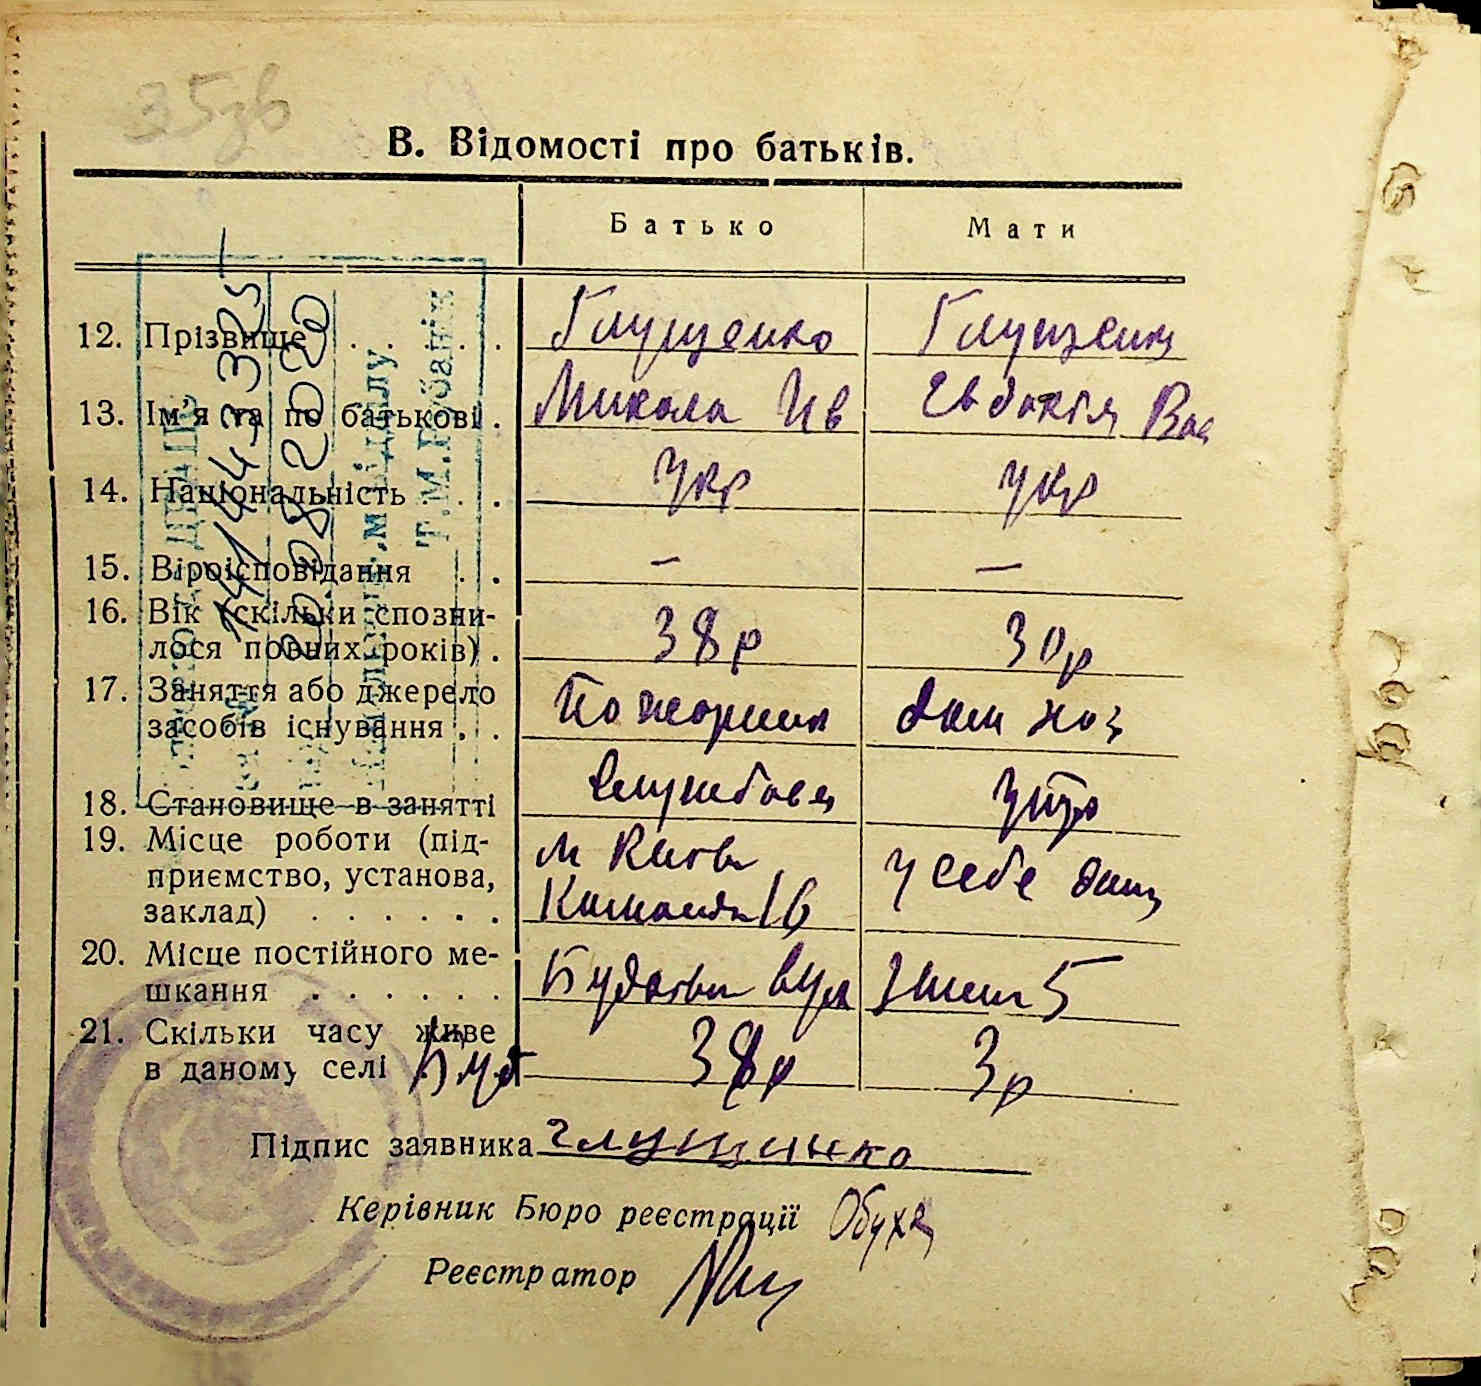 35зв
В. Відомості про батьків.
Батько Мати
12. Прізвище . . . . Глущенко Глущенко
13. Ім'я та по батькові . Микола Ив Євдокія Вас
14. Національність . . Укр Укр
15. Віроісповідання . . — —
16. Вік (скільки сповни-
лося повних років) . 38р 30р
17. Заняття або джерело
засобів існування . . Пожарник дом хоз
18. Становище в занятті Службовец утр
19. Місце роботи (під-
приємство, установа,
заклад) . . . . . . м Київ Команда 16 у себе дома
20. Місце постійного ме-
шкання . . . . . . вул 5
21. Скільки часу живе
в даному селі 38р 3р
Підпис заявника Глущенко
Керівник Бюро реєстрації Обухо
Реєстратор